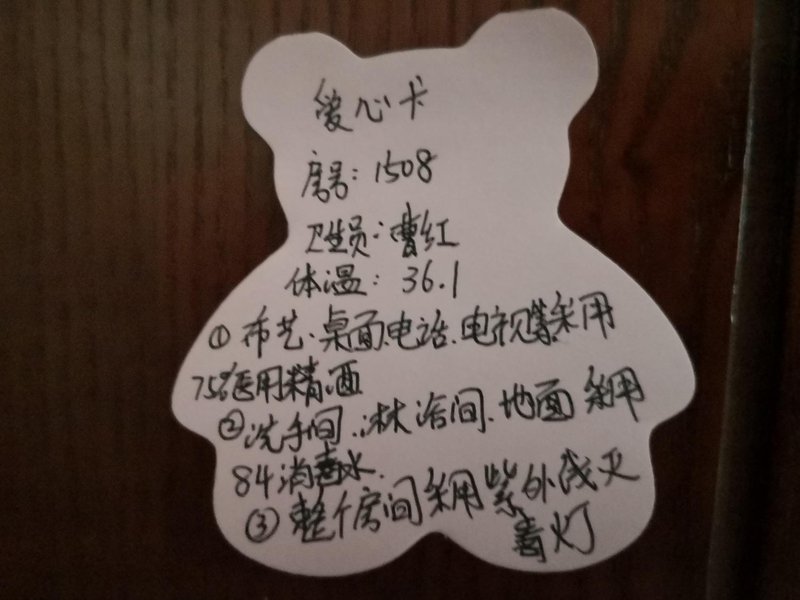 爱心卡
房号：1508
卫生员：曹红
体温：36.1
①布艺、桌面、电话、电视等采用
75%医用精酒
②洗手间、淋浴间、地面采用
84消毒水.
③整个房间采用紫外线灭
毒灯